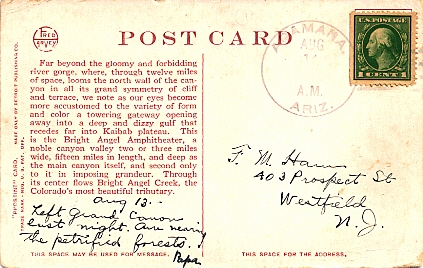 FRED HARVEY
POST CARD
ADAMANA,
AUG
A.M.
ARIZ.
U.S. POSTAGE
1 CENT 1
Far beyond the gloomy and forbidding
river gorge, where, through twelve miles
of space, looms the north wall of the can-
yon in all its grand symmetry of cliff
and terrace, we note as our eyes become
more accustomed to the variety of form
and color a towering gateway opening
away into a deep and dizzy gulf that
recedes far into Kaibab plateau. This
is the Bright Angel Amphitheater, a
noble canyon valley two or three miles
wide, fifteen miles in length, and deep as
the main canyon itself, and second only
to it in imposing grandeur. Through
its center flows Bright Angel Creek, the
Colorado's most beautiful tributary.
"PHOSTINT" CARD
MADE ONLY BY DETROIT PUBLISHING CO.
TRADE MARK REG. U.S. PAT. OFF.
Aug 13.-
Left Grand Canon
last night. Are nearing
the petrified forests.
Papa
THIS SPACE MAY BE USED FOR MESSAGE.
F. M. Harris
403 Prospect St
Westfield
N. J.
THIS SPACE FOR THE ADDRESS.